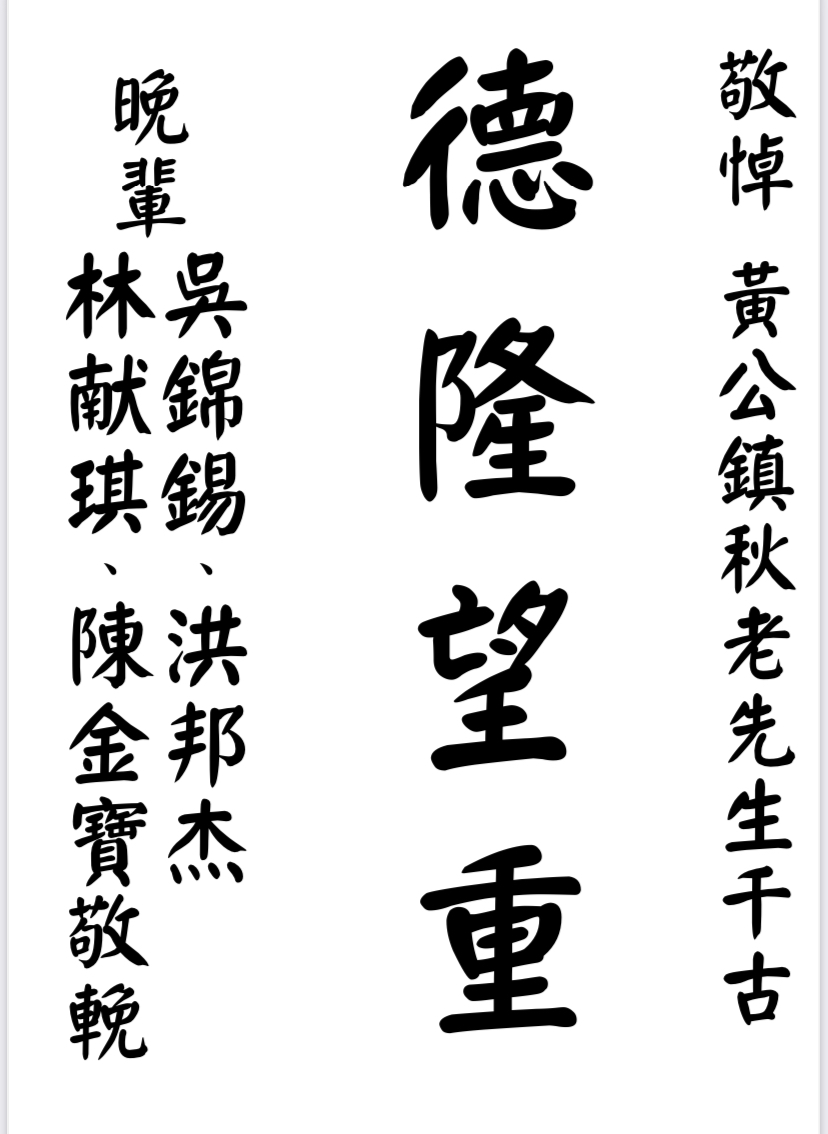 敬悼 黃公鎮秋老先生千古
德隆望重
晚輩
吳錦錫、洪邦杰
林献琪、陳金寶敬輓